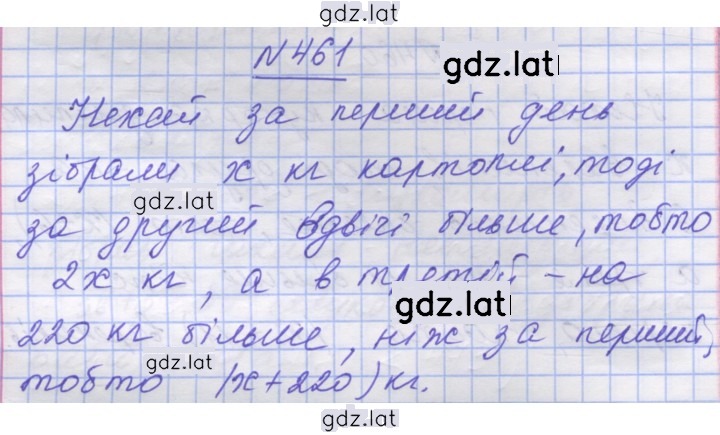 gdz.lat
N 461
gdz.lat
Нехай за перший день
зібрали x кг картоплі, тоді
gdz.lat
за другий вдвічі більше, тобто
2x кг, а в третій – на
gdz.lat
220 кг більше, ніж за перший,
gdz.lat
тобто (x+220) кг.
gdz.lat